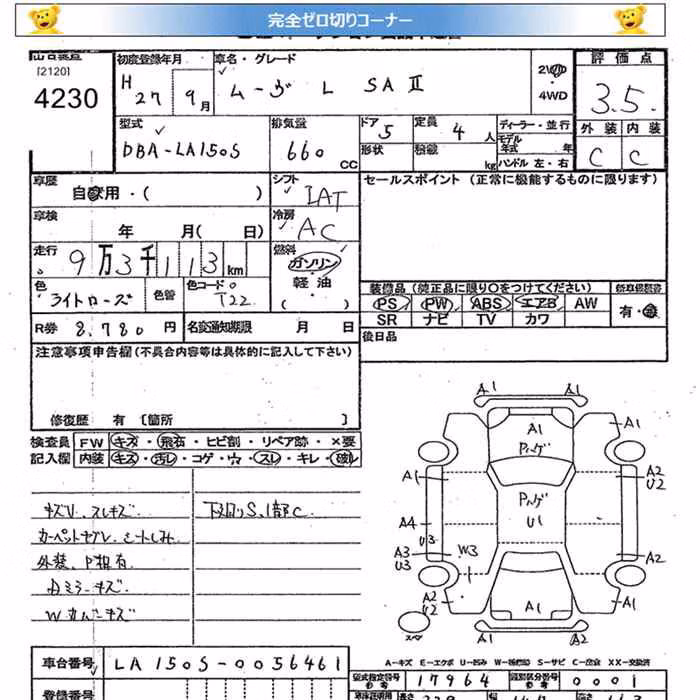 完全ゼロ切りコーナー
[2120]
4230
初度登録年月
H 27 9月
車名・グレード
ムーヴ L SAⅡ
2WD
4WD
評価点
3.5
外装 内装
C C
型式
DBA-LA150S
排気量
660 CC
ドア 5
形状
定員 4 人
積載 kg
ディーラー・並行
モデル年式 年
ハンドル 左・右
車歴
自家用・( )
シフト
IAT
セールスポイント (正常に機能するものに限ります)
車検
年 月( 日)
冷房
AC
走行
9万3千113km
燃料
ガソリン
軽油
( )
色
ライトローズ
色替
色コードNo
T22
装備品 (純正品に限り○をつけてください)
PS PW ABS エアB AW
SR ナビ TV カワ
有・無
R券 8,780 円
名変通知期限 月 日
後日品
注意事項申告欄 (不具合内容等は具体的に記入して下さい)
修復歴 有 [箇所 ]
検査員 FW キズ・飛石・ヒビ割・リペア跡・×要
記入欄 内装 キズ・汚レ・コゲ・穴・スレ・キレ・破レ
キズU、スレキズ
下廻りS、1部C
外装、P相有
Dミラーキズ
A1 A1
A1
Pハゲ
A1
A1
Pハゲ
U1
A2
U2
A4
U3
A3
U3
W3
A2
A2
U2
A1
A1
A2 A2
スペア
車台番号 LA150S-0056461
A-キズ E-エクボ U-凹み W-補修跡 S-サビ C-腐食 XX-交換済
型式指定番号 17964
類別区分番号 0001
登録番号